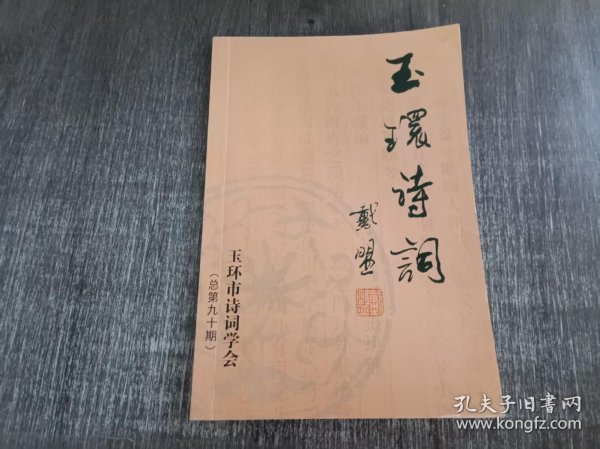 玉環诗詞
戴盟
玉环市诗词学会
（总第九十期）
孔夫子旧书网
www.kongfz.com